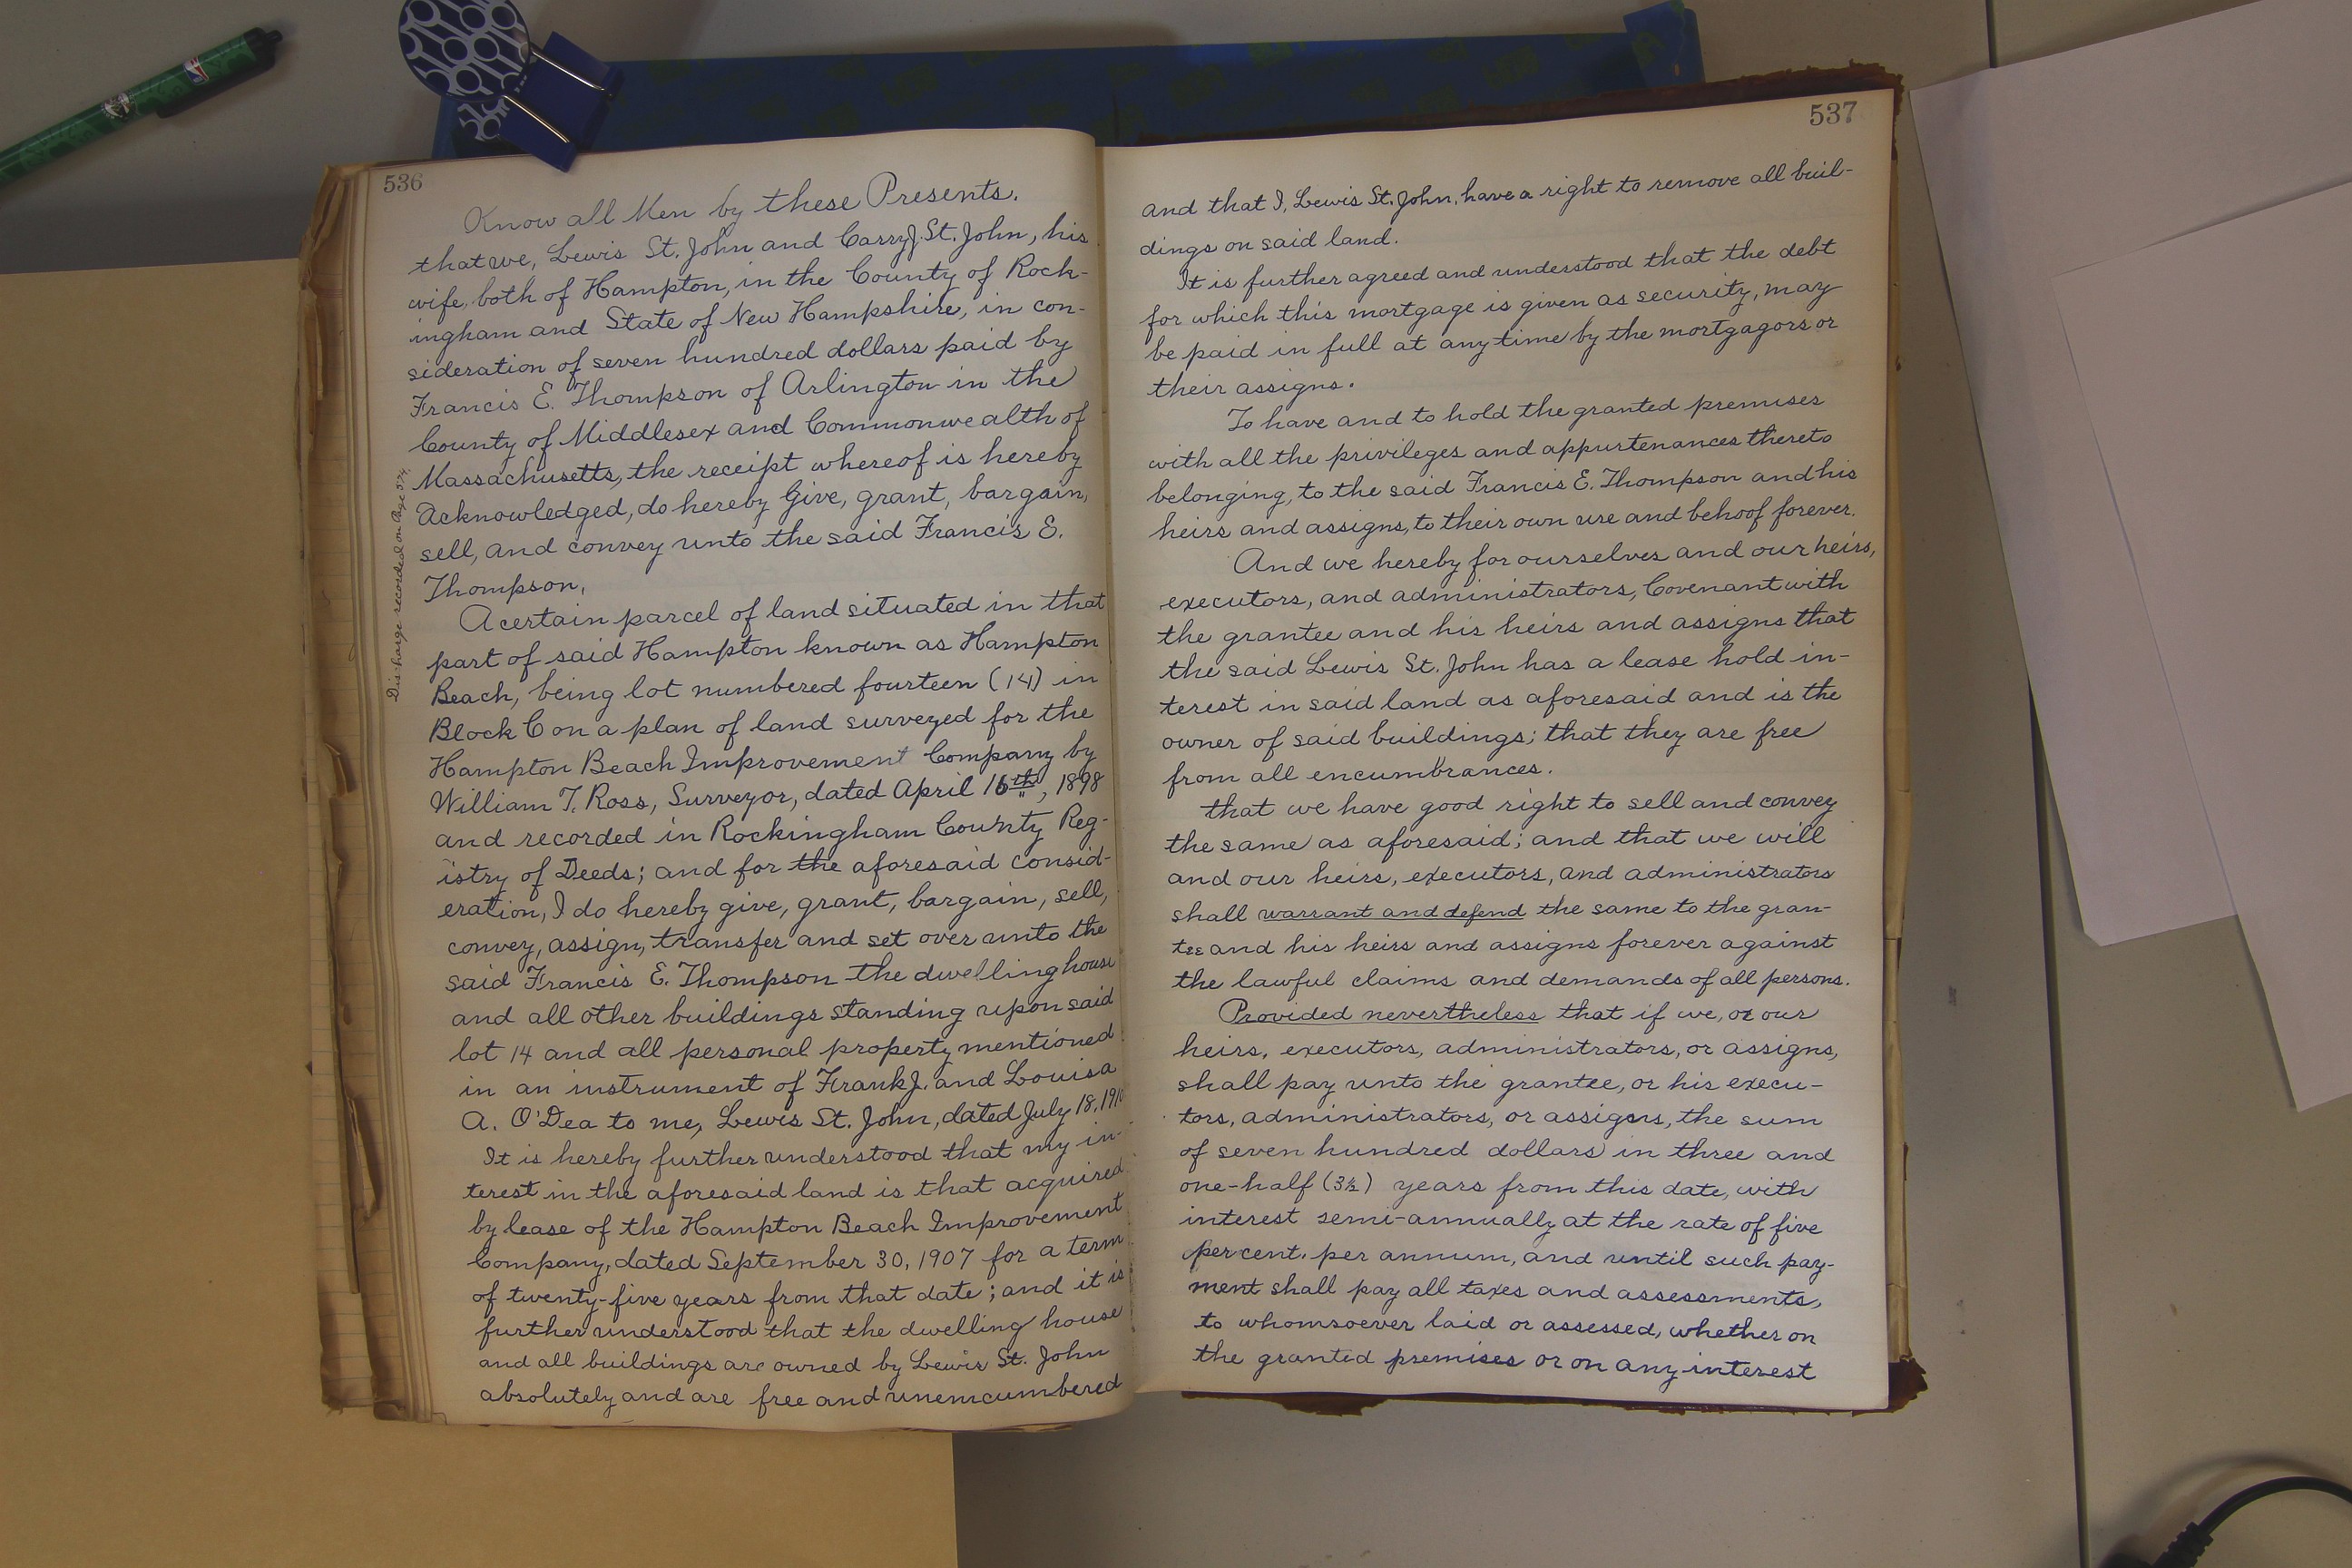 536
Know all Men by these Presents.
that we, Lewis St. John and Carry J. St. John, his
wife, both of Hampton, in the County of Rock-
ingham and State of New Hampshire, in con-
sideration of seven hundred dollars paid by
Francis E. Thompson of Arlington in the
County of Middlesex and Commonwealth of
Massachusetts, the receipt whereof is hereby
Acknowledged, do hereby Give, grant, bargain,
sell, and convey unto the said Francis E.
Thompson,
A certain parcel of land situated in that
part of said Hampton known as Hampton
Beach, being lot numbered fourteen (14) in
Block C on a plan of land surveyed for the
Hampton Beach Improvement Company by
William T. Ross, Surveyor, dated April 16th, 1898
and recorded in Rockingham County Reg-
istry of Deeds; and for the aforesaid consid-
eration, I do hereby give, grant, bargain, sell,
convey, assign, transfer and set over unto the
said Francis E. Thompson the dwelling house
and all other buildings standing upon said
lot 14 and all personal property mentioned
in an instrument of Frank J. and Louisa
A. O'Dea to me, Lewis St. John, dated July 18,
It is hereby further understood that my in-
terest in the aforesaid land is that acquired
by lease of the Hampton Beach Improvement
Company, dated September 30, 1907 for a term
of twenty-five years from that date; and it is
further understood that the dwelling house
and all buildings are owned by Lewis St. John
absolutely and are free and unemcumbered
Discharge recorded on Page
537
and that I, Lewis St. John, have a right to remove all buil-
dings on said land.
It is further agreed and understood that the debt
for which this mortgage is given as security, may
be paid in full at any time by the mortgagors or
their assigns.
To have and to hold the granted premises
with all the privileges and appurtenances thereto
belonging, to the said Francis E. Thompson and his
heirs and assigns, to their own use and behoof forever.
And we hereby for ourselves and our heirs,
executors, and administrators, Covenant with
the grantee and his heirs and assigns that
the said Lewis St. John has a lease hold in-
terest in said land as aforesaid and is the
owner of said buildings; that they are free
from all encumbrances.
that we have good right to sell and convey
the same as aforesaid; and that we will
and our heirs, executors, and administrators
shall warrant and defend the same to the gran-
tee and his heirs and assigns forever against
the lawful claims and demands of all persons.
Provided nevertheless that if we, or our
heirs, executors, administrators, or assigns,
shall pay unto the grantee, or his execu-
tors, administrators, or assigns, the sum
of seven hundred dollars in three and
one-half (3½) years from this date, with
interest semi-annually at the rate of five
per cent. per annum, and until such pay-
ment shall pay all taxes and assessments,
to whomsoever laid or assessed, whether on
the granted premises or on any interest